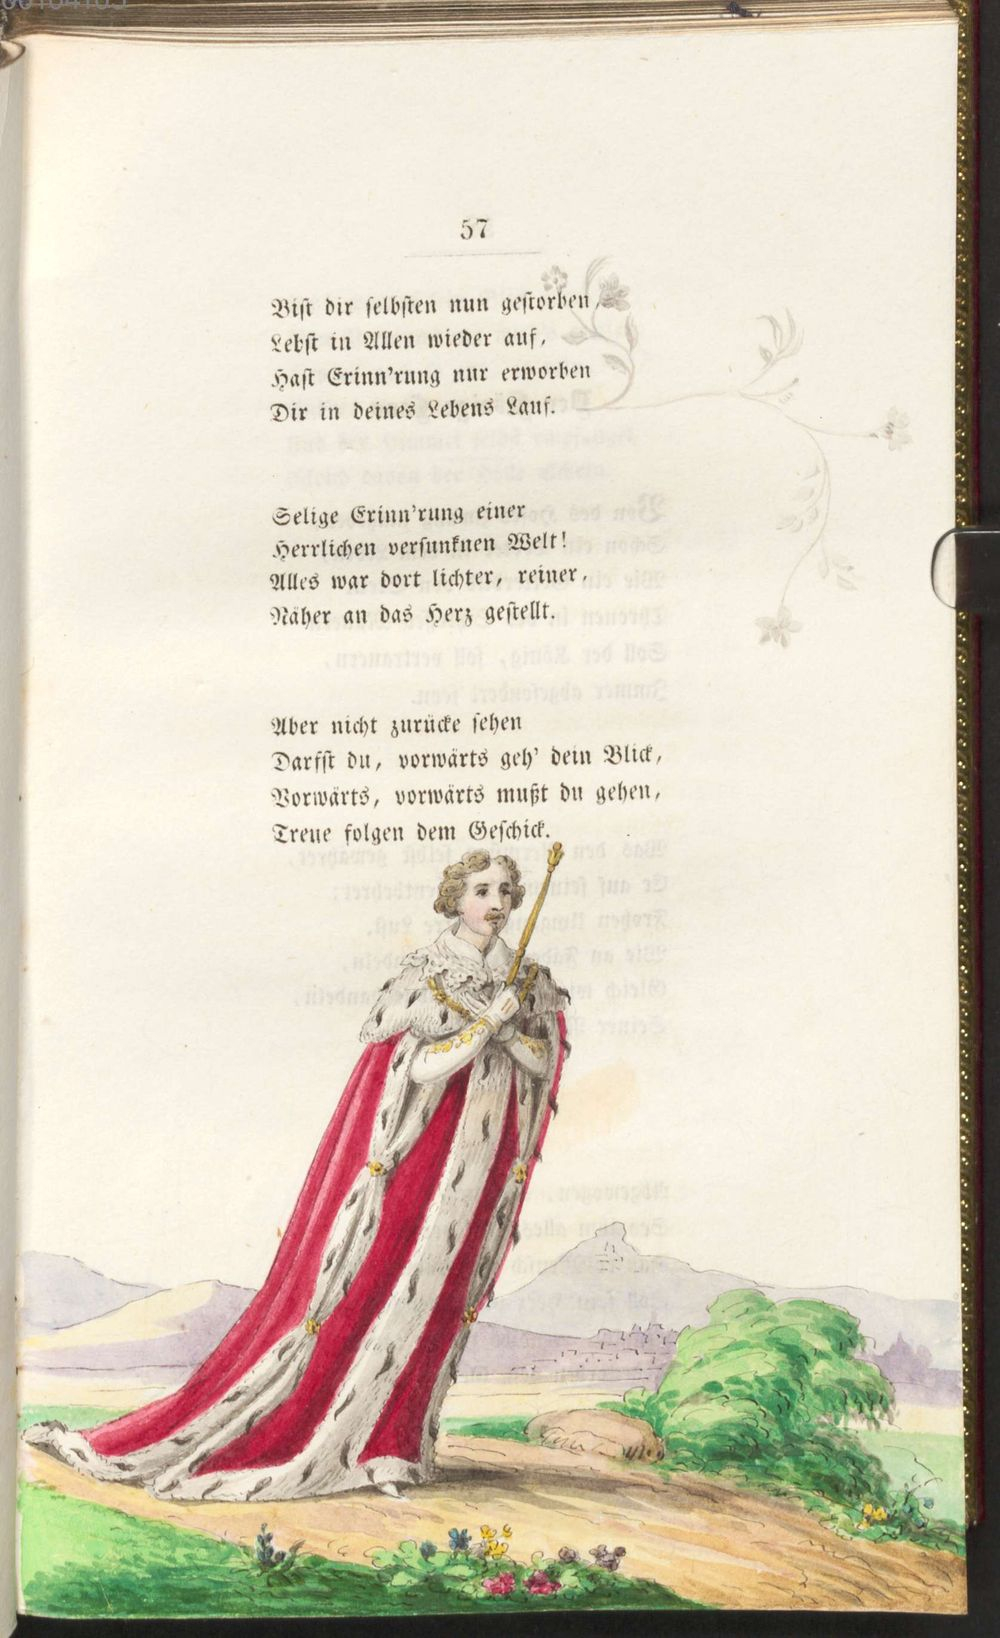 57
Bist dir selbsten nun gestorben,
Lebst in Allen wieder auf,
Hast Erinn'rung nur erworben
Dir in deines Lebens Lauf.
Selige Erinn'rung einer
Herrlichen versunknen Welt!
Alles war dort lichter, reiner,
Näher an das Herz gestellt.
Aber nicht zurücke sehen
Darfst du, vorwärts geh' dein Blick,
Vorwärts, vorwärts mußt du gehen,
Treue folgen dem Geschick.